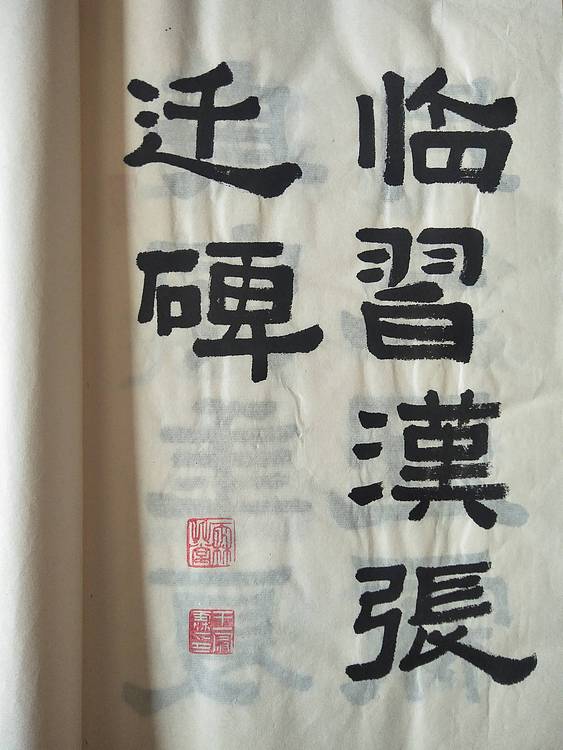 临習漢張
迁碑